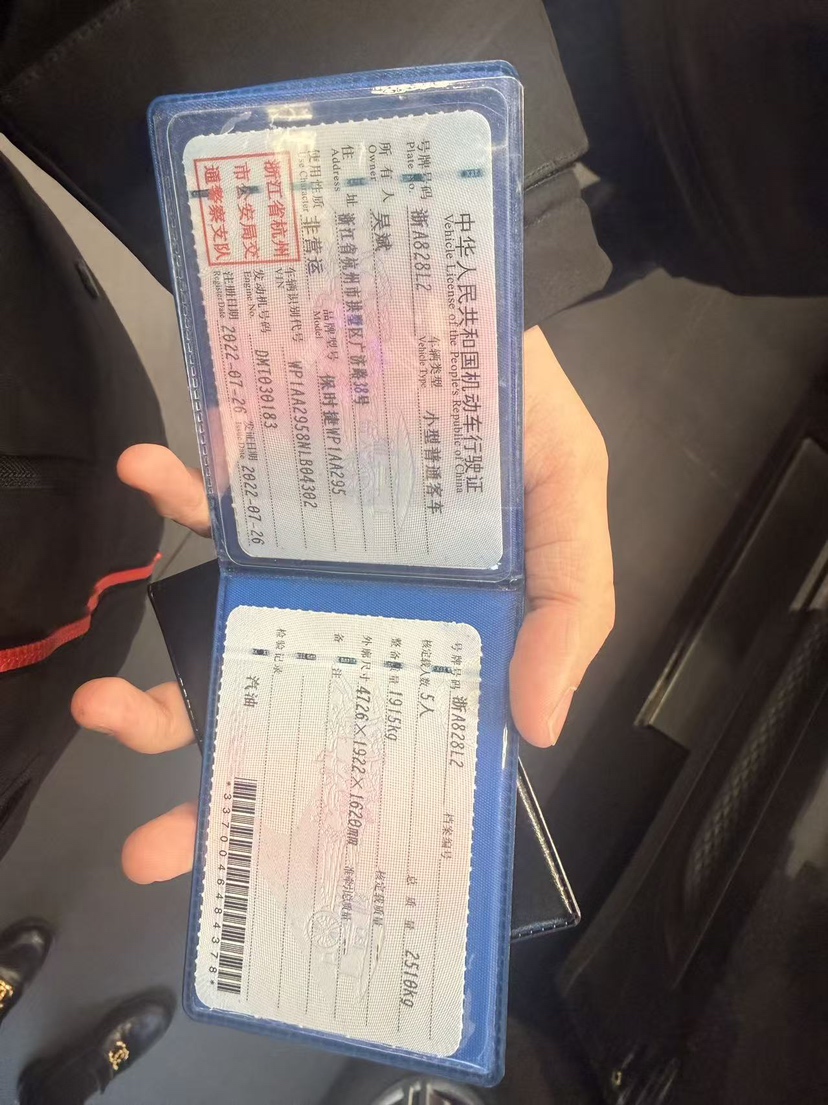 中华人民共和国机动车行驶证
Vehicle License of the People's Republic of China
号牌号码 浙A828L2 车辆类型 小型普通客车
Plate No. Vehicle Type
所有人 吴斌
Owner
住址 浙江省杭州市拱墅区广济路38号
Address
使用性质 非营运 品牌型号 保时捷WP1AA295
Use Character Model
浙江省杭州
市公安局交
通警察支队
车辆识别代号 WP1AA2958NLB04302
VIN
发动机号码 DMT030183
Engine No.
注册日期 2022-07-26 发证日期 2022-07-26
Register Date Issue Date
号牌号码 浙A828L2 档案编号
核定载人数 5人 总质量 2510kg
整备质量 1915kg 核定载质量
外廓尺寸 4726×1922×1620mm 准牵引总质量
备注
检验记录
汽油
*3370046484378*